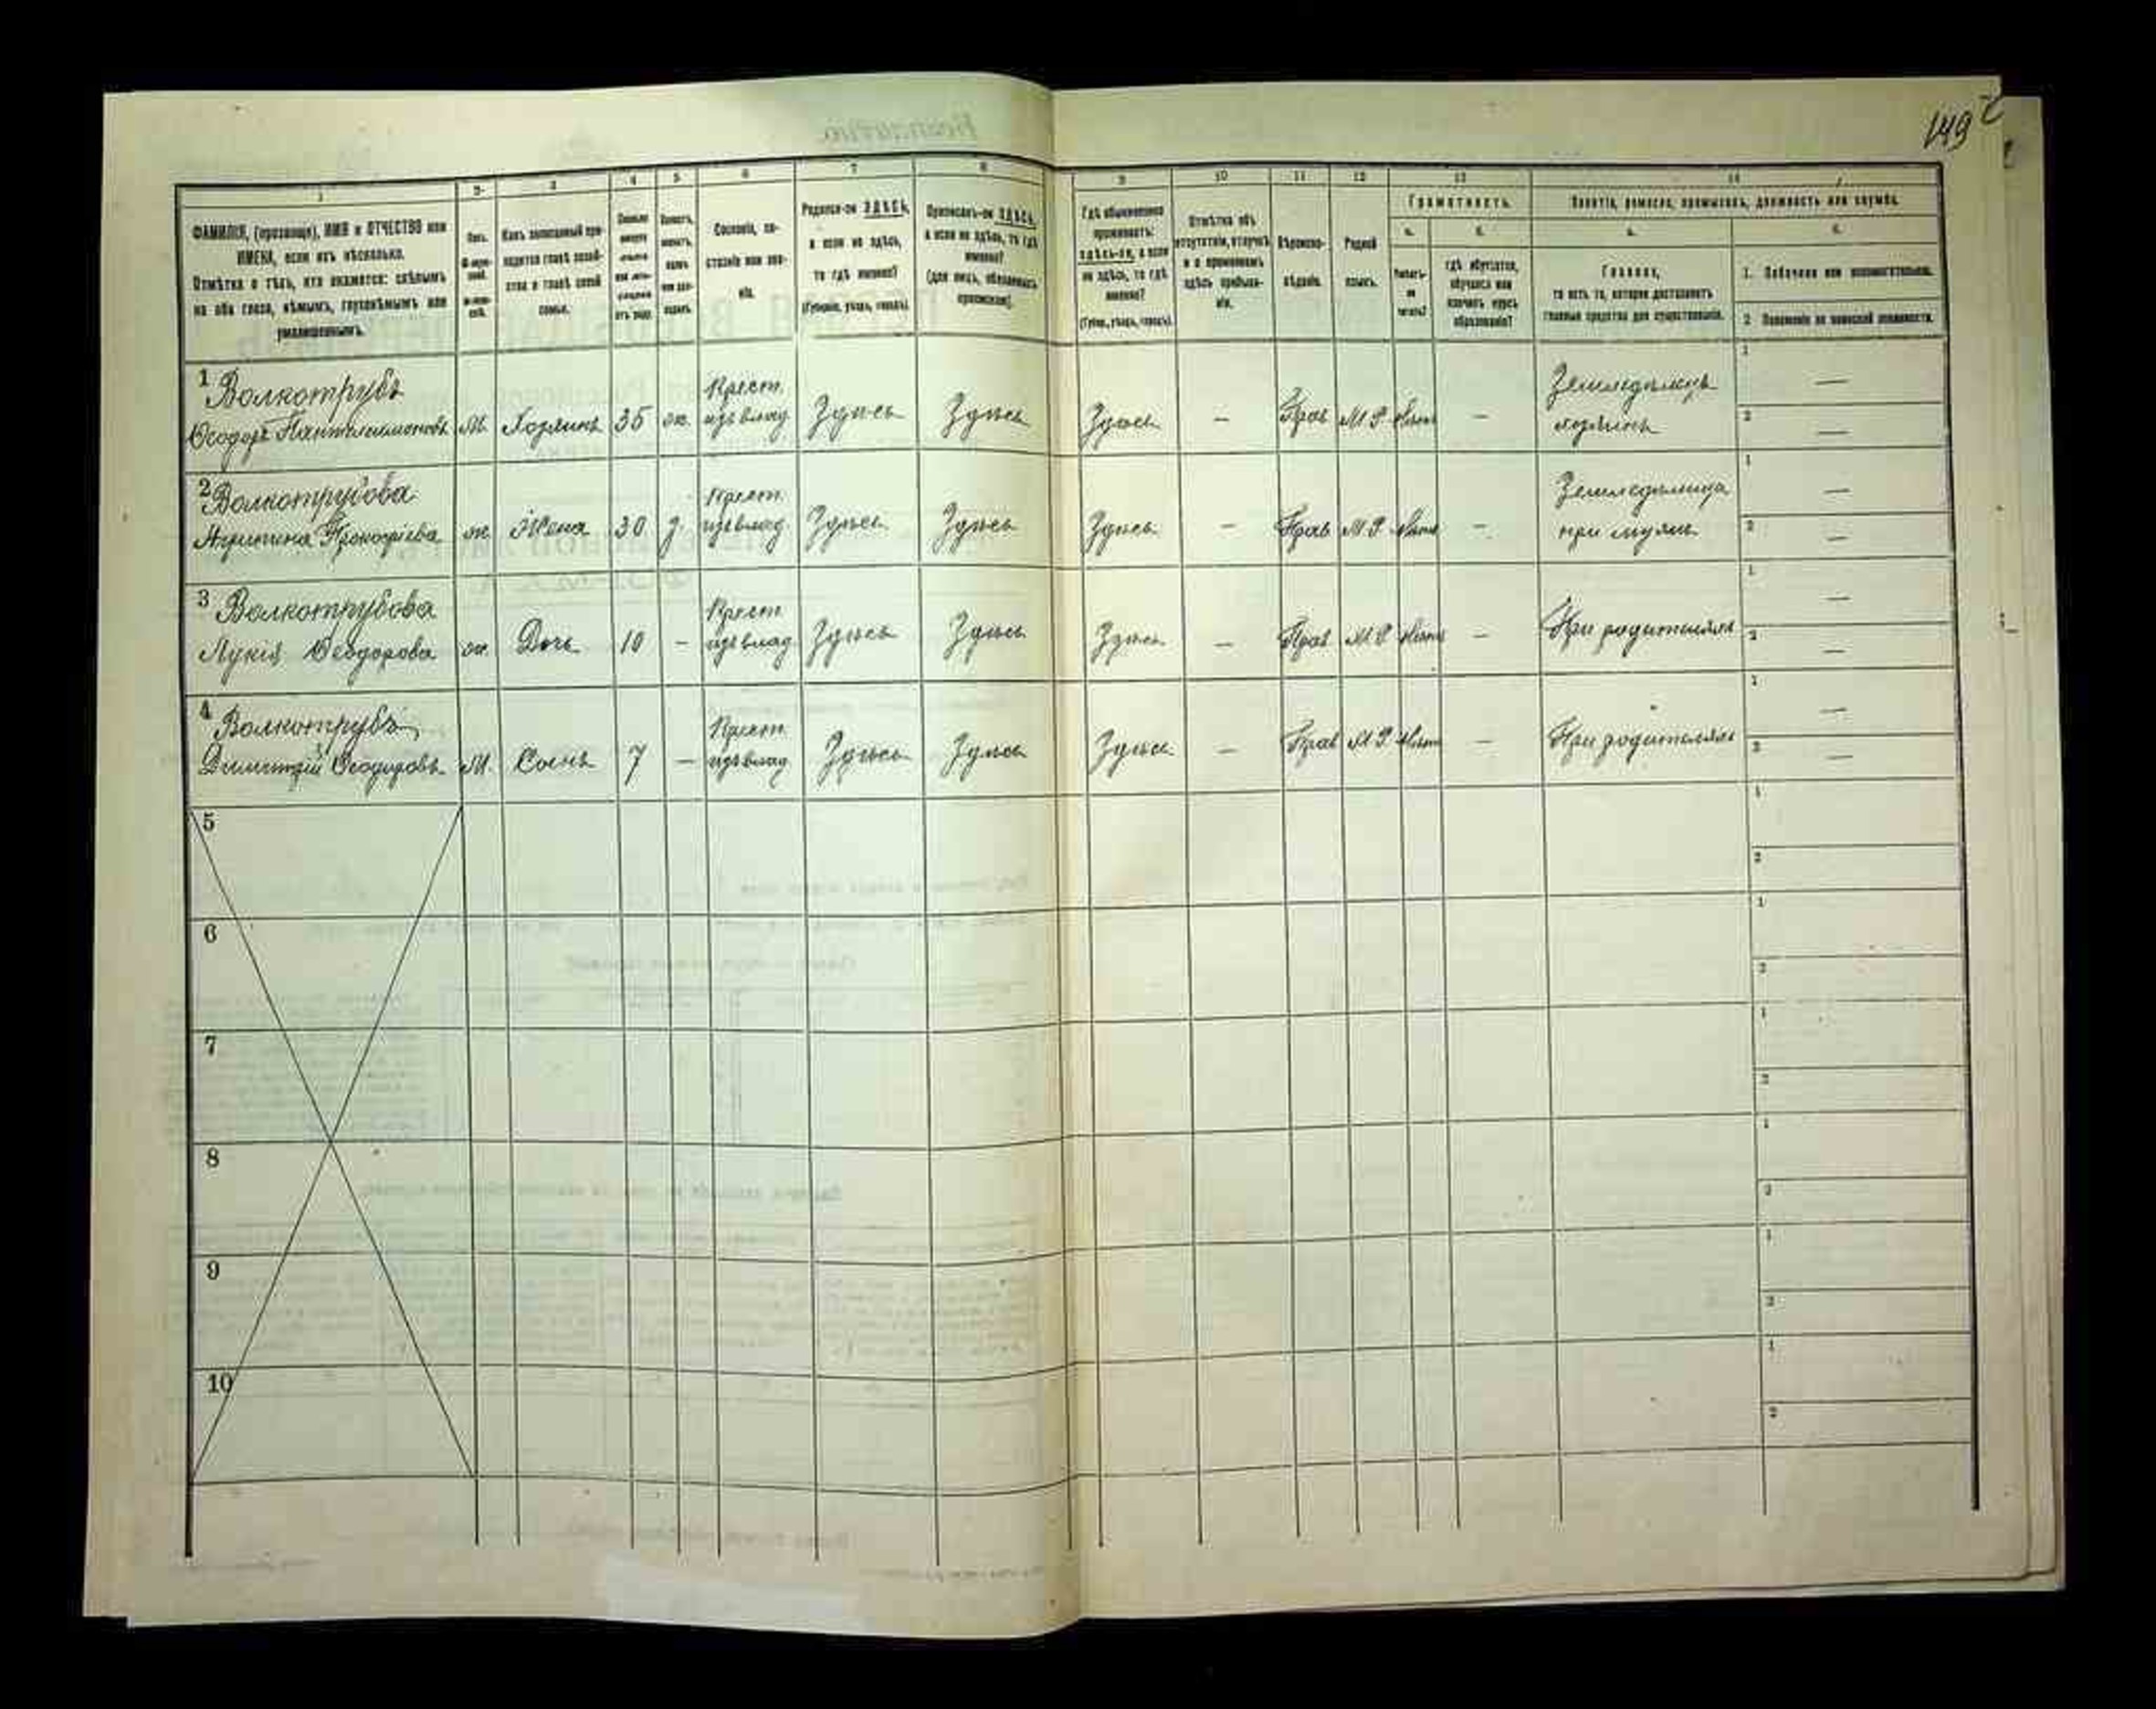 149
1 2 3 4 5 6 7 8 9 10 11 12 13 14
ФАМИЛІЯ, (прозвище), ИМЯ и ОТЧЕСТВО или
ИМЕНА, если ихъ нѣсколько.
Отмѣтка о тѣхъ, кто окажется: слѣпымъ
на оба глаза, нѣмымъ, глухонѣмымъ или
умалишеннымъ.
Полъ.
Сословіе, со-
стояніе или зва-
ніе.
Родился-ли ЗДѢСЬ,
а если не здѣсь,
то гдѣ именно?
(Губернія, уѣздъ, городъ).
Приписанъ-ли ЗДѢСЬ,
а если не здѣсь, то гдѣ
именно?
(для лицъ, обязанныхъ
припискою).
Гдѣ обыкновенно
проживаетъ:
здѣсь-ли, а если
не здѣсь, то гдѣ
именно?
(Губер., уѣздъ, городъ).
Отмѣтка объ
отсутствіи, отлучкѣ
и о временномъ
здѣсь пребыва-
ніи.
Вѣроиспо-
вѣданіе.
Родной
языкъ.
Грамотность.
а. б.
Умѣетъ-
ли
читать?
гдѣ обучается,
обучался или
кончилъ курсъ
образованія?
Занятіе, ремесло, промыселъ, должность или служба.
а. б.
Главное,
то есть то, которое доставляетъ
главныя средства для существованія.
1. Побочное или вспомогательное.
2. Положеніе по воинской повинности.
1 Волкотрубъ
Ѳеодоръ Пантелеимоновъ м. Хозяинъ 35 ж. Крест. изъ влад. Здѣсь Здѣсь Здѣсь – Прав М Р Нѣтъ – Земледѣлецъ
хозяинъ
2 Волкотрубова
Агрипина Прокофіева ж. Жена 30 з. Крест. изъ влад. Здѣсь Здѣсь Здѣсь – Прав М Р Нѣтъ – Земледѣлица
при мужѣ
3 Волкотрубова
Лукія Ѳеодорова ж. Дочь 10 – Крест. изъ влад. Здѣсь Здѣсь Здѣсь – Прав М Р Нѣтъ – При родителяхъ
4 Волкотрубъ
Димитрій Ѳеодоровъ М. Сынъ 7 – Крест. изъ влад. Здѣсь Здѣсь Здѣсь – Прав М Р Нѣтъ – При родителяхъ
5
6
7
8
9
10